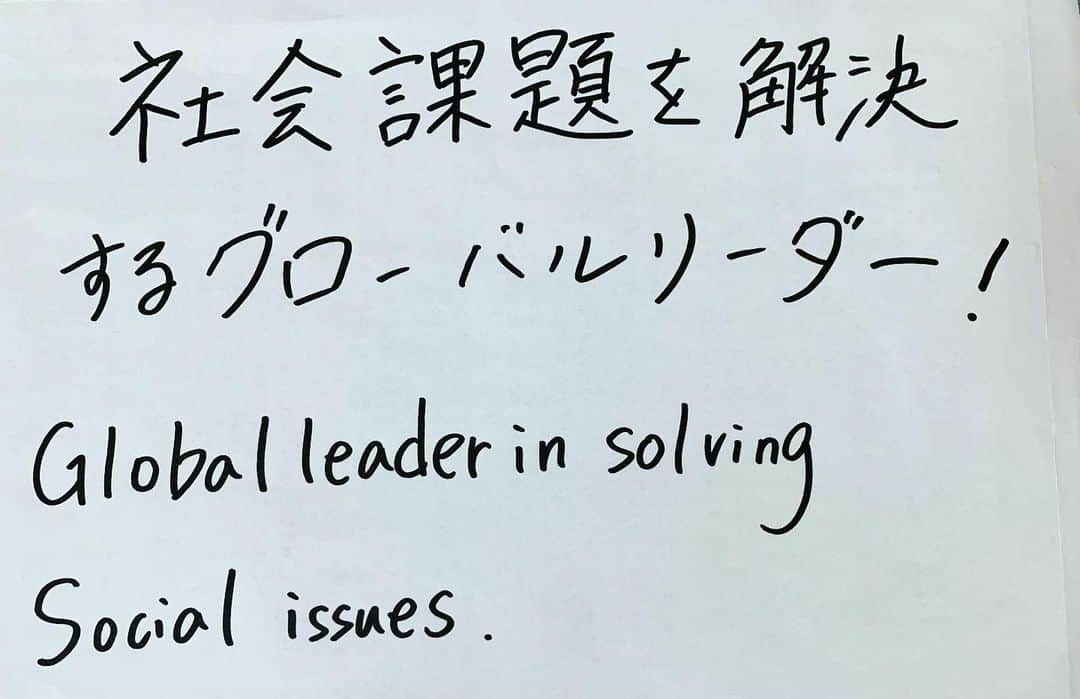 社会課題を解決
するグローバルリーダー!
Global leader in solving
Social issues.